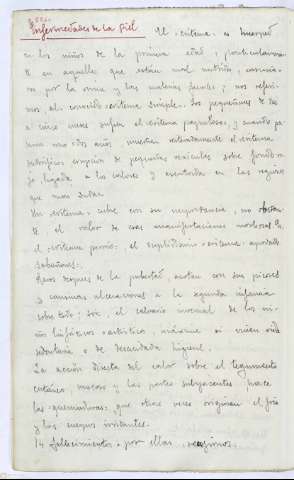 Enfermedades de la Piel El eritema es huesped
en los niños de la primera edad, particularmen-
te en aquellos que estan mal nutridos,
por la orina y las materias fecales; nos referi-
mos al conocido eritema simple. Los pequeñines de dos
a cinco meses sufren el eritema papuloso, y cuando pa-
san uno o dos años, muestran reiteradamente el eritema
sudorifico erupcion de pequeñas vesiculas sobre fondo ro-
jo, ligada a los calores y asentada en las regiones
que mas sudan.
Un eritema, cubre con su importancia, no obstan-
te, el valor de esas manifestaciones morbosas,
el eritema pernio; el eritema apodado
sabañones.
Raros despues de la pubertad, azotan con sus picores
y comunes ulceraciones a la segunda infancia
sobre todo; son, el calvario invernal de los ni-
ños linfaticos y artriticos, maxime si viven vida
sedentaria o de descuidada higiene.
La acción directa del calor sobre el tegumento
cutáneo, mucoso y las partes subyacentes, hace
las quemaduras; que otras veces originan el frio
y los cuerpos irritantes.
14 fallecimientos por ellas,